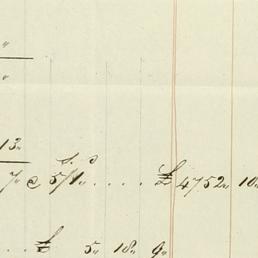 "
"
13"
s. d
7" @ 5/1" . . . . £ 4752" 18"
. . £ 5" 18" 9"